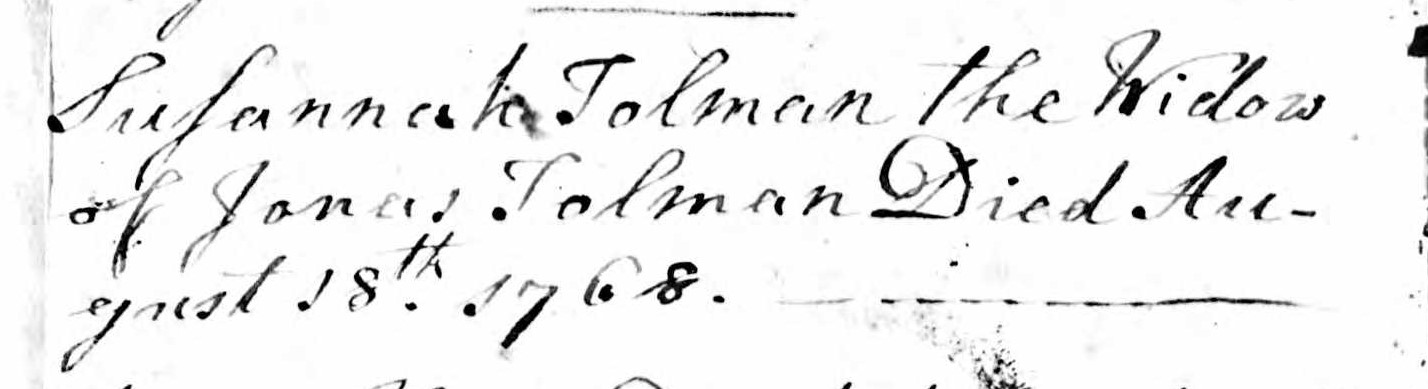 Susannah Tolman the Widow
of Jonas Tolman Died Au-
gust 18th. 1768.